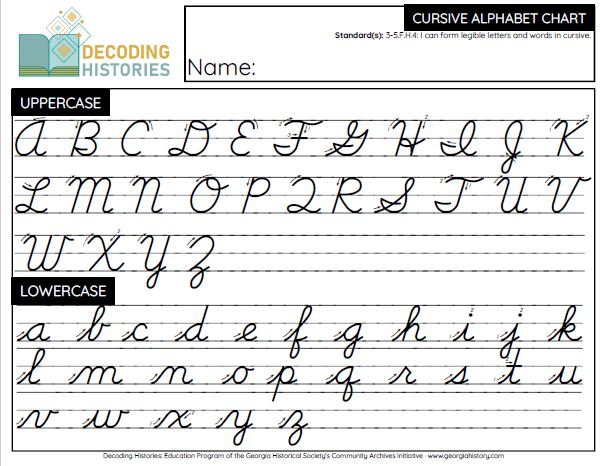 DECODING
HISTORIES
CURSIVE ALPHABET CHART
Standard(s): 3-5.F.H.4: I can form legible letters and words in cursive.
Name:
UPPERCASE
A B C D E F G H I J K
L M N O P Q R S T U V
W X Y Z
LOWERCASE
a b c d e f g h i j k
l m n o p q r s t u
v w x y z
Decoding Histories: Education Program of the Georgia Historical Society's Community Archives Initiative · www.georgiahistory.com